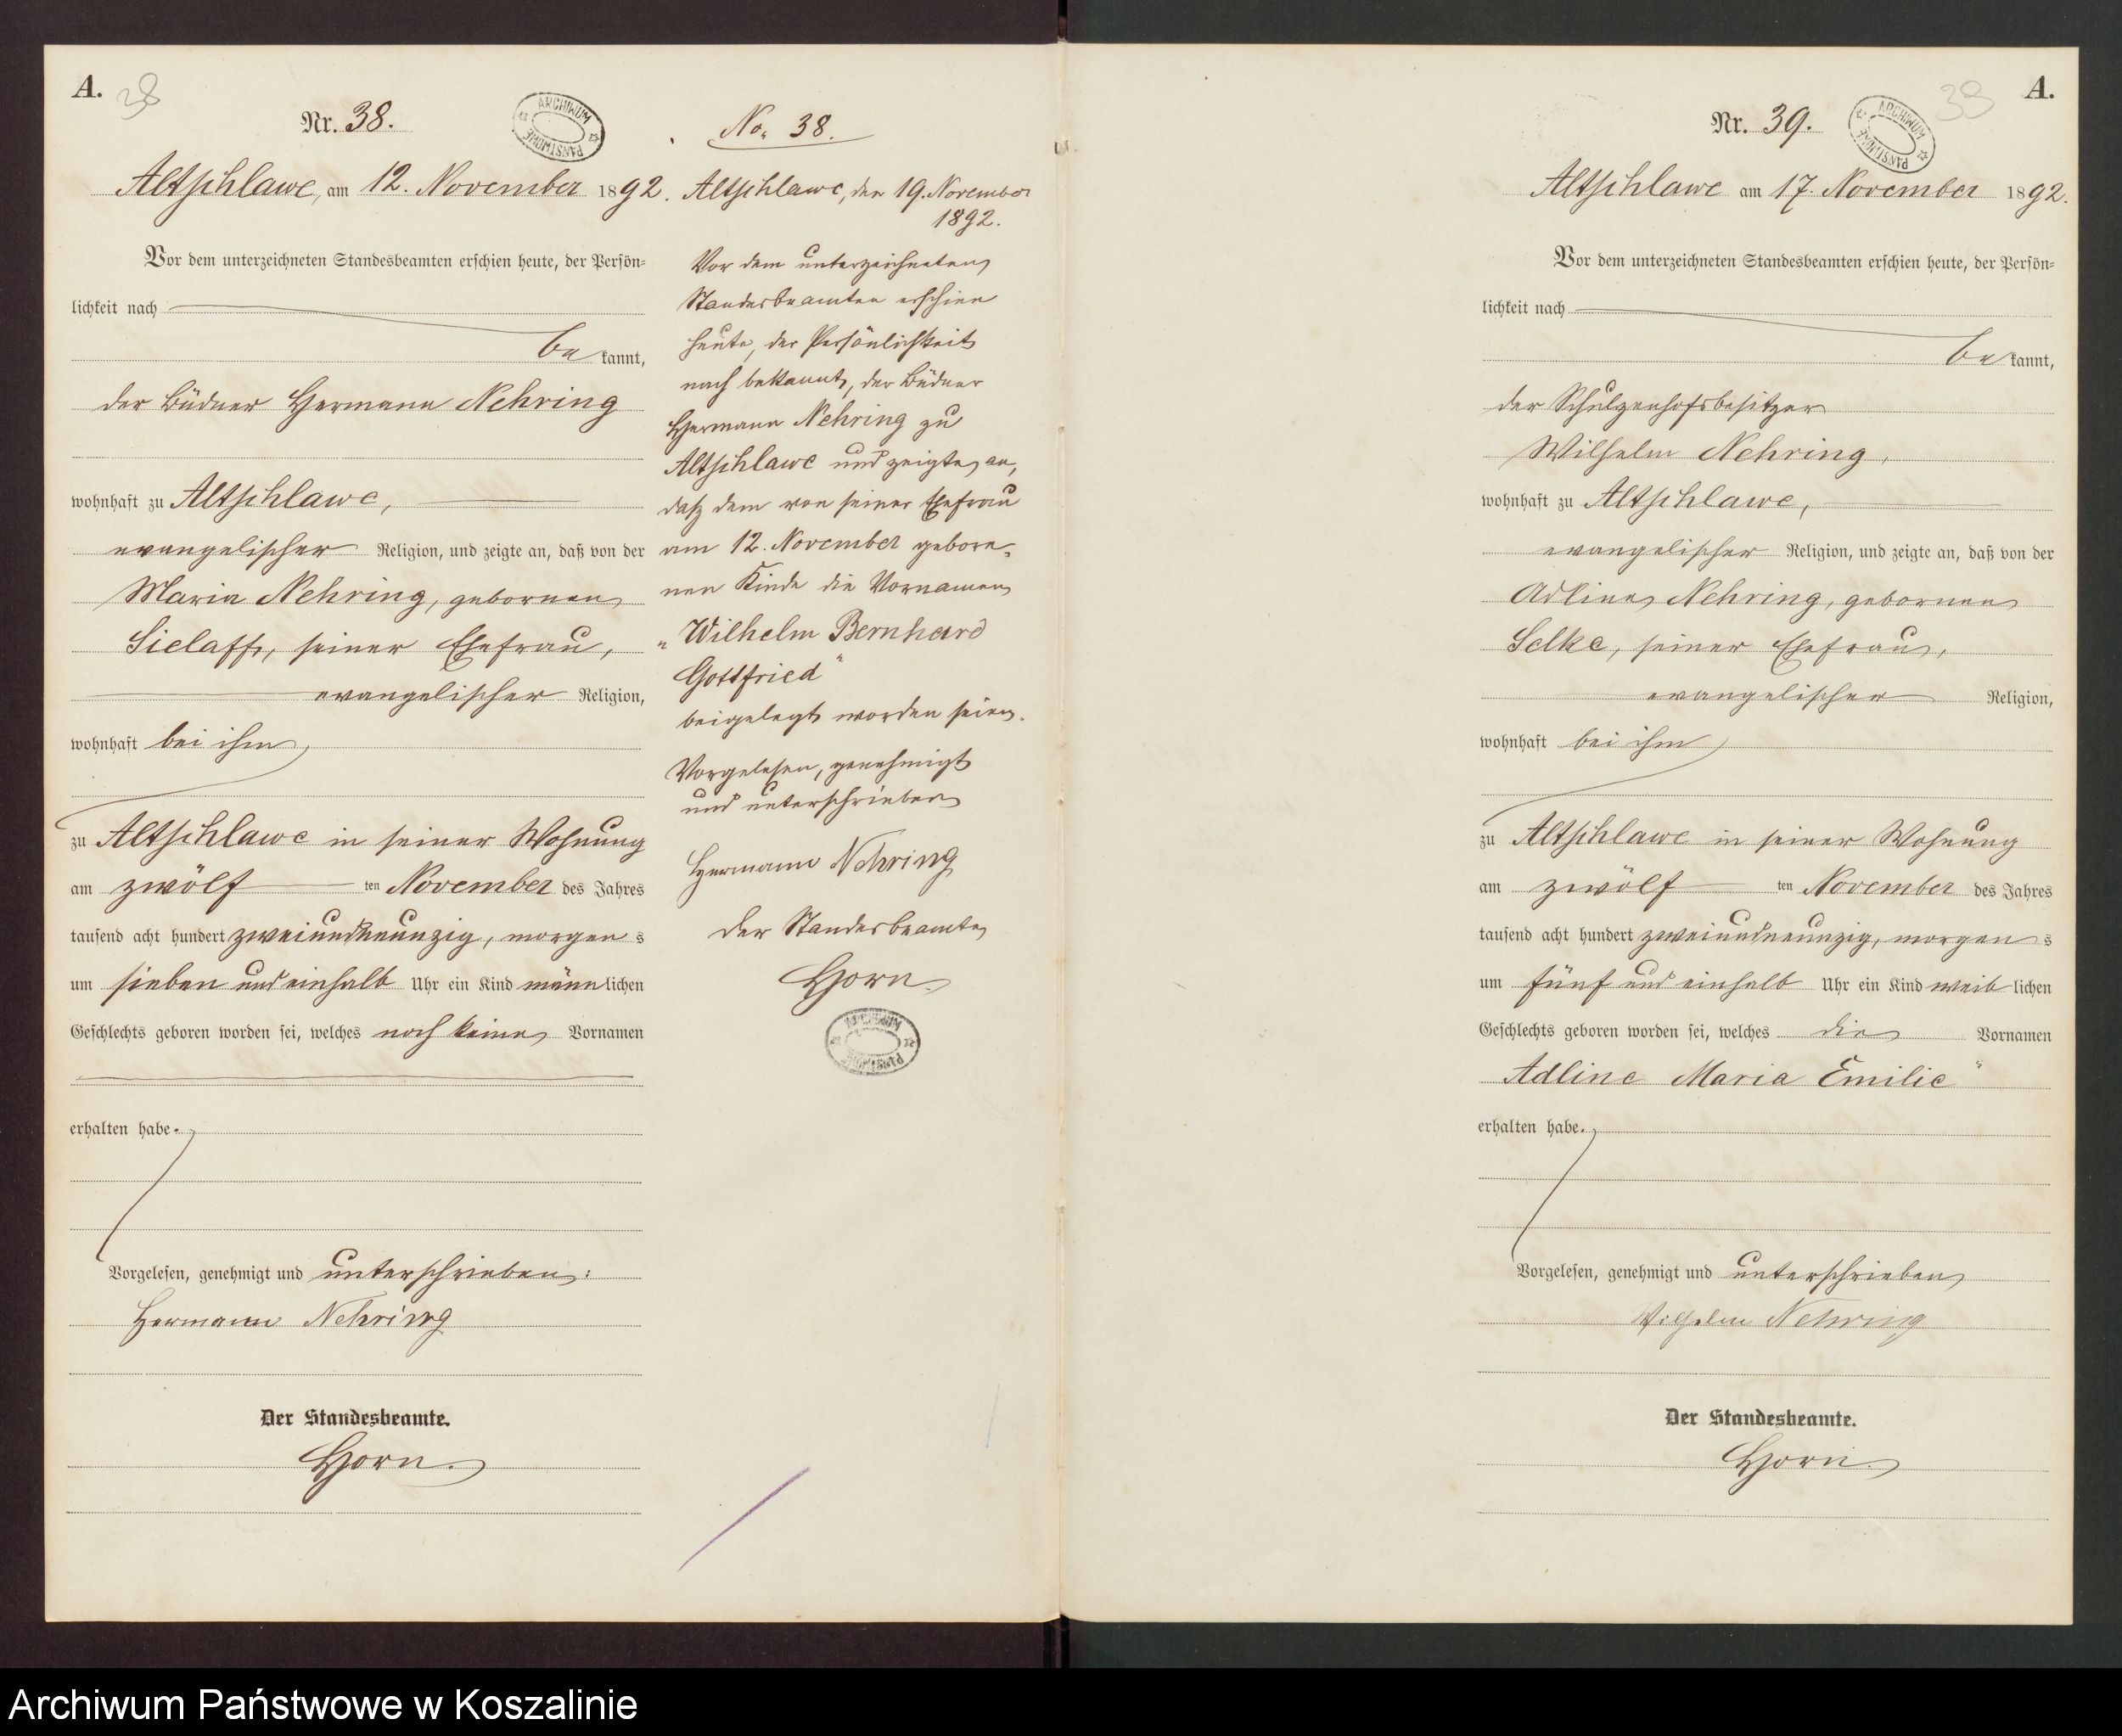 A.
38
Nr. 38.
ARCHIWUM PAŃSTWOWE
Altschlawe, am 12. November 1892.
Vor dem unterzeichneten Standesbeamten erschien heute, der Persön-
lichkeit nach
bekannt,
der Büdner Hermann Nehring
wohnhaft zu Altschlawe,
evangelischer Religion, und zeigte an, daß von der
Maria Nehring, gebornen
Sielaff, seiner Ehefrau,
evangelischer Religion,
wohnhaft bei ihm,
zu Altschlawe in seiner Wohnung
am zwölften November des Jahres
tausend acht hundert zweiundneunzig, morgens
um sieben und einhalb Uhr ein Kind männlichen
Geschlechts geboren worden sei, welches noch keine Vornamen
erhalten habe.
Vorgelesen, genehmigt und unterschrieben:
Hermann Nehring
Der Standesbeamte.
Horn.
No. 38.
Altschlawe, den 19. November
1892.
Vor dem unterzeichneten
Standesbeamten erschien
heute, der Persönlichkeit
nach bekannt, der Büdner
Hermann Nehring zu
Altschlawe und zeigte an,
daß dem von seiner Ehefrau
am 12. November gebore-
nen Kinde die Vornamen
„Wilhelm Bernhard
Gottfried“
beigelegt worden seien.
Vorgelesen, genehmigt
und unterschrieben
Hermann Nehring
Der Standesbeamte
Horn.
ARCHIWUM PAŃSTWOWE
A.
39
Nr. 39.
ARCHIWUM PAŃSTWOWE
Altschlawe am 17. November 1892.
Vor dem unterzeichneten Standesbeamten erschien heute, der Persön-
lichkeit nach
bekannt,
der Schulzenhofsbesitzer
Wilhelm Nehring,
wohnhaft zu Altschlawe,
evangelischer Religion, und zeigte an, daß von der
Adline Nehring, gebornen
Selke, seiner Ehefrau,
evangelischer Religion,
wohnhaft bei ihm,
zu Altschlawe in seiner Wohnung
am zwölften November des Jahres
tausend acht hundert zweiundneunzig, morgens
um fünf und einhalb Uhr ein Kind weiblichen
Geschlechts geboren worden sei, welches die Vornamen
Adline Maria Emilie“
erhalten habe.
Vorgelesen, genehmigt und unterschrieben
Wilhelm Nehring
Der Standesbeamte.
Horn.
Archiwum Państwowe w Koszalinie